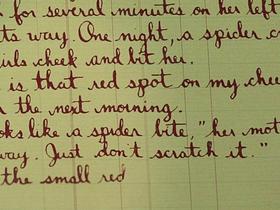 n for several minutes on her left
its way. One night, a spider cr
irls cheek and bit her.
is that red spot on my chee
r the next morning.
oks like a spider bite," her mot
way. Just don't scratch it."
the small red